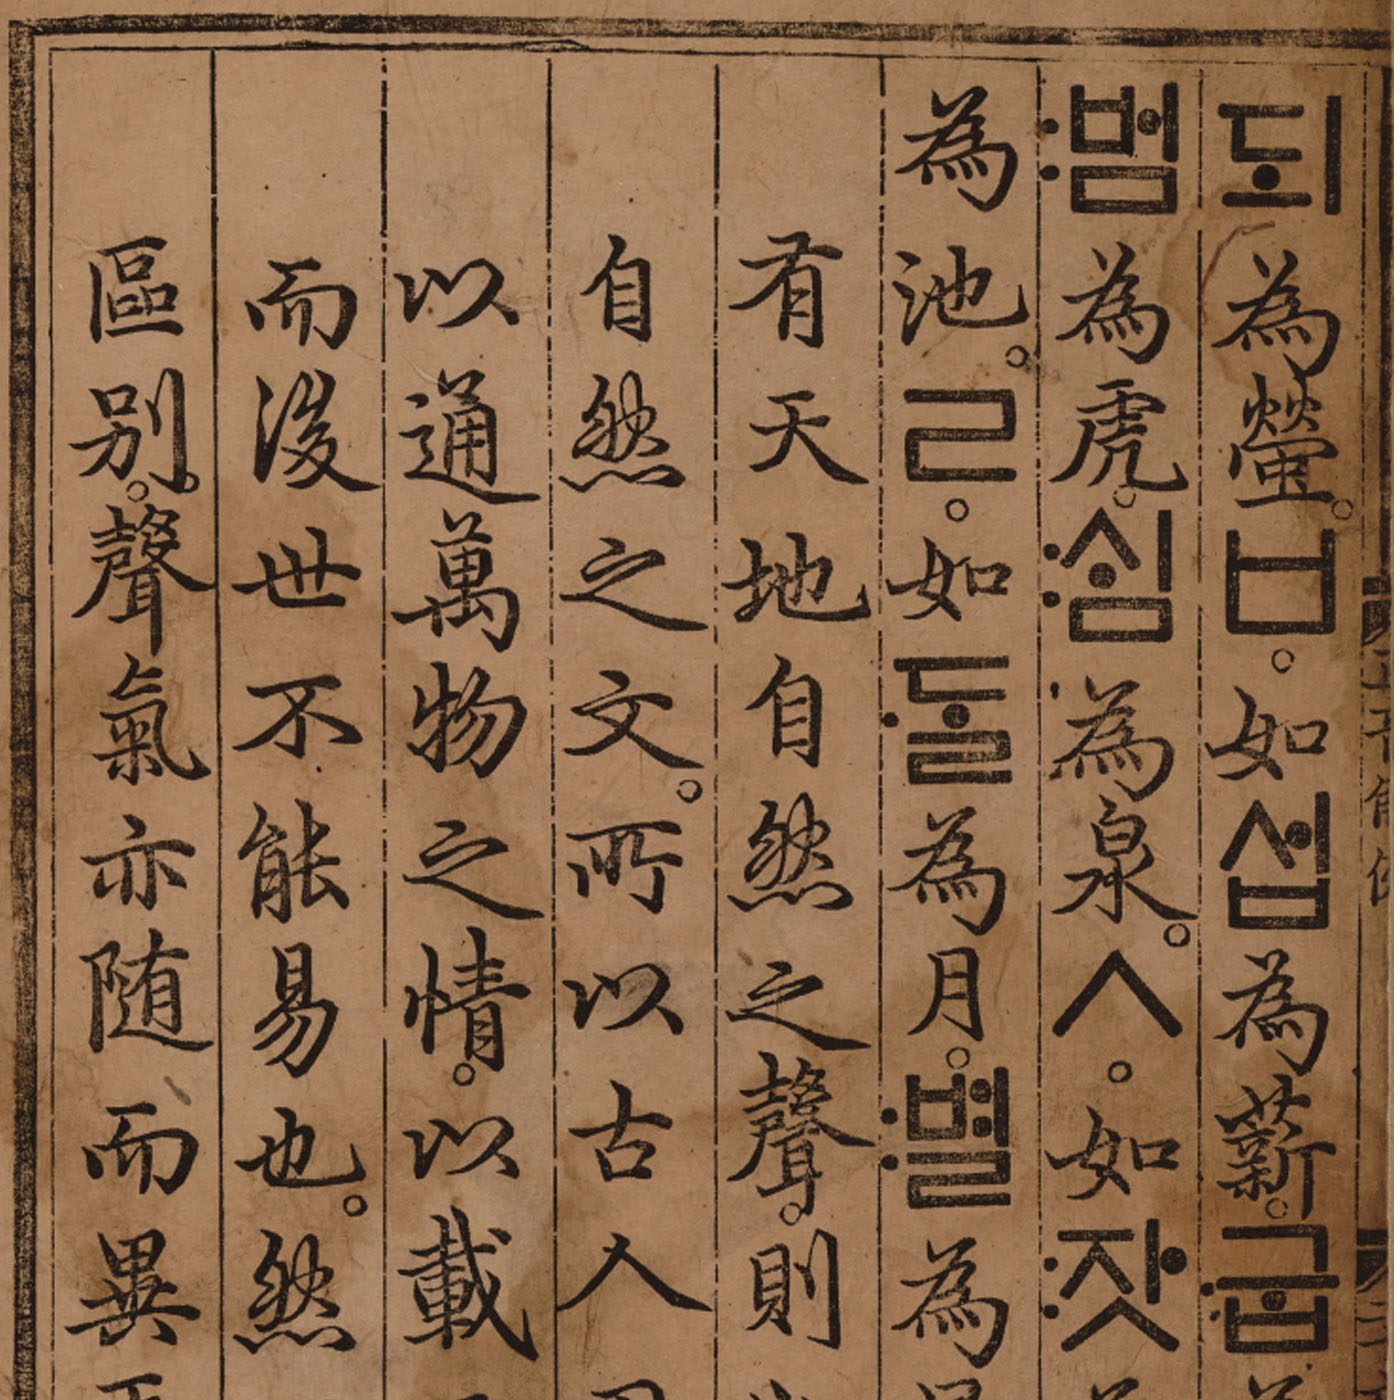 되為螢。ㅂ。如섭為薪。·굽
:범為虎。:ᄉᆡᆷ為泉。ㅅ。如:잣
為池。ㄹ。如·ᄃᆞᆯ為月。:별為
有天地自然之聲。則
自然之文。所以古人
以通萬物之情。以載
而後世不能易也。然
區別。聲氣亦隨而異